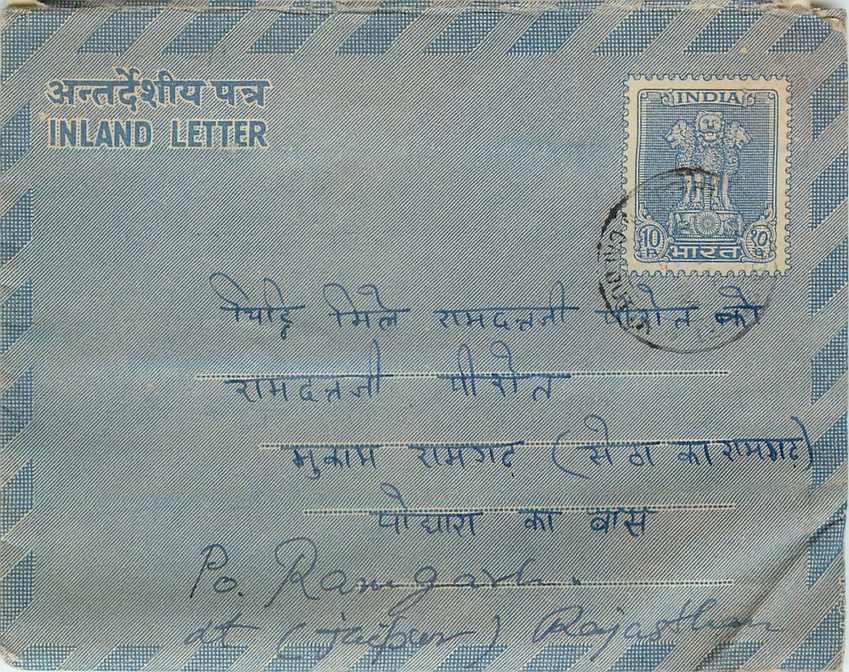 अन्तर्देशीय पत्र
INLAND LETTER
INDIA
10 १०
भारत
चिठि मिले रामदत्तजी पीरोत को
रामदत्तजी पीरोत
मुकाम रामगढ़ (सेठा का रामगढ़)
पोद्यारा का बास
Po. Ramgarh.
dt (jaipur) Rajasthan